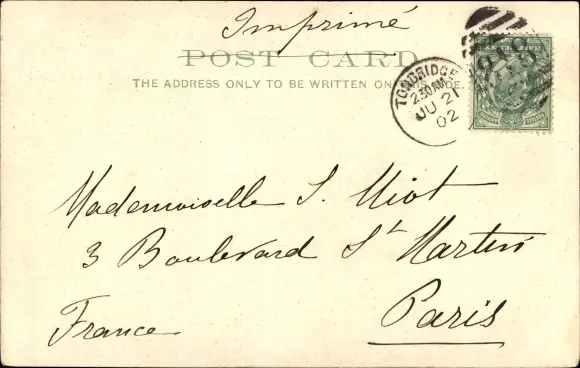 Imprimé
POST CARD
THE ADDRESS ONLY TO BE WRITTEN ON SIDE.
TONBRIDGE
2.30AM
JU 21
02
Mademoiselle S. Miot
3 Boulevard St Martin
Paris
France